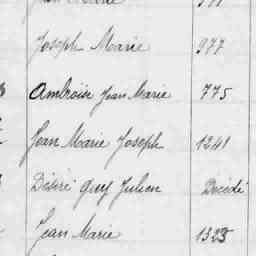 Joseph Marie 977
Ambroise Jean Marie 775
Jean Marie Joseph 1241
Désiré Guy Julien Décédé
Jean Marie 1323